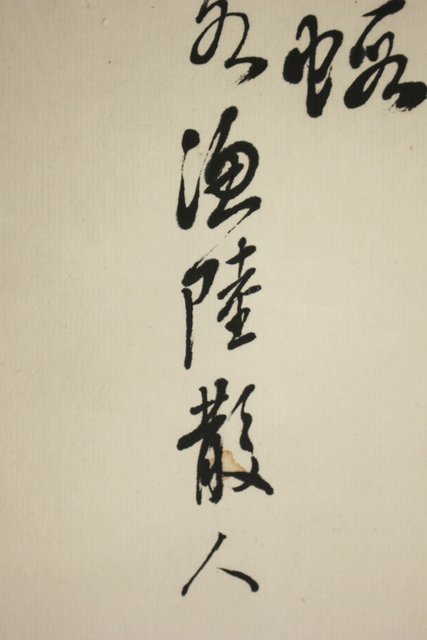 漁陸散人